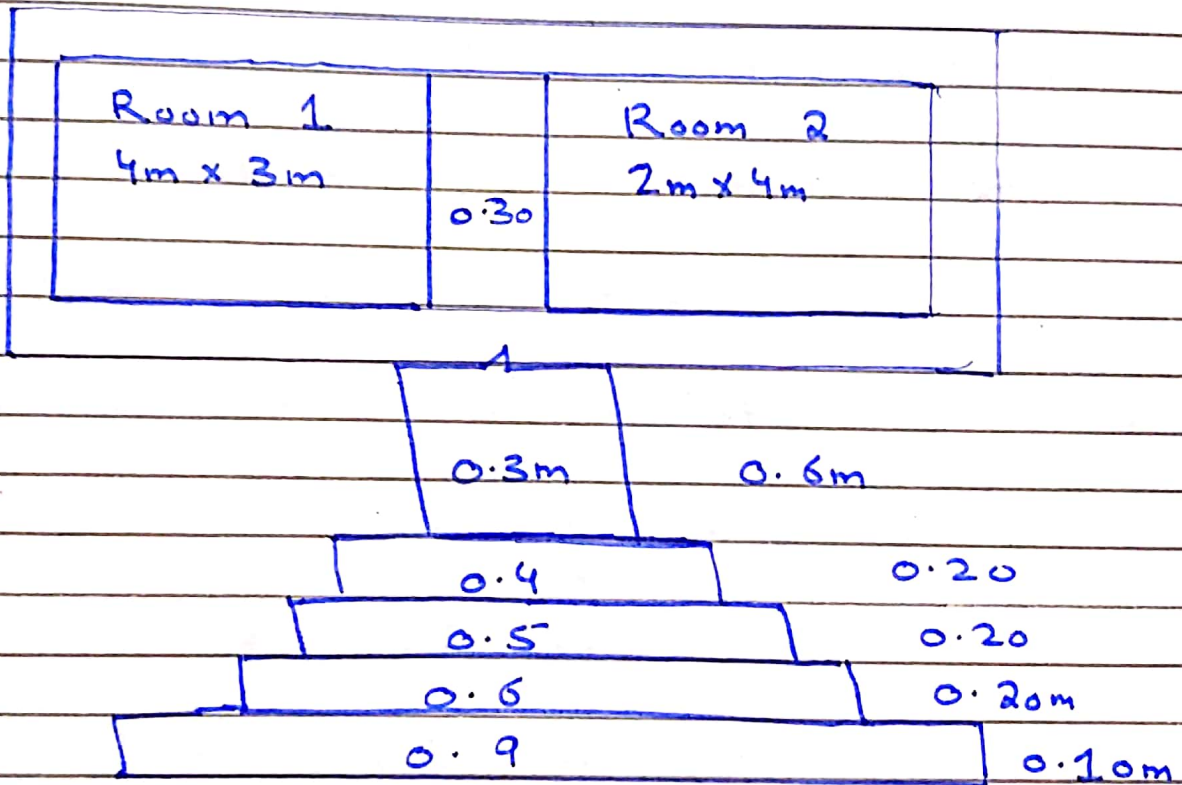 Room 1
4m x 3m
0.30
Room 2
2m x 4m
0.3m 0.6m
0.4 0.20
0.5 0.20
0.6 0.20m
0.9 0.10m